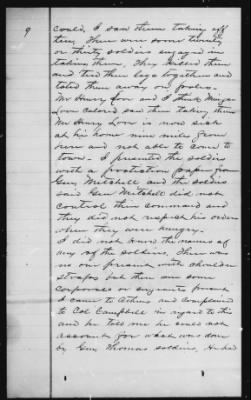 9
could, I saw them taking off
them. There were some twenty
or thirty soldiers engaged in
taking them, They killed them
and tied their legs together and
toted them away on poles.
Mr Henry Love and I think
Love Colored saw them taken, then
Mr Henry Love is now sick
at his home nine miles from
here and not able to come to
town. I presented the soldiers
with a protection paper from
Gen Mitchell and the soldiers
said Gen Mitchell did not
control their command and
they did not respect his orders
when they were hungry.
I did not know the names of
any of the soldiers, There was
no one present with shoulder
straps but there was some
Corporals or sergeants present
I came to Athens and complained
to Col Campbell in regard to this
and he told me he could not
account for what was done
by Gen Thomas soldiers, He had